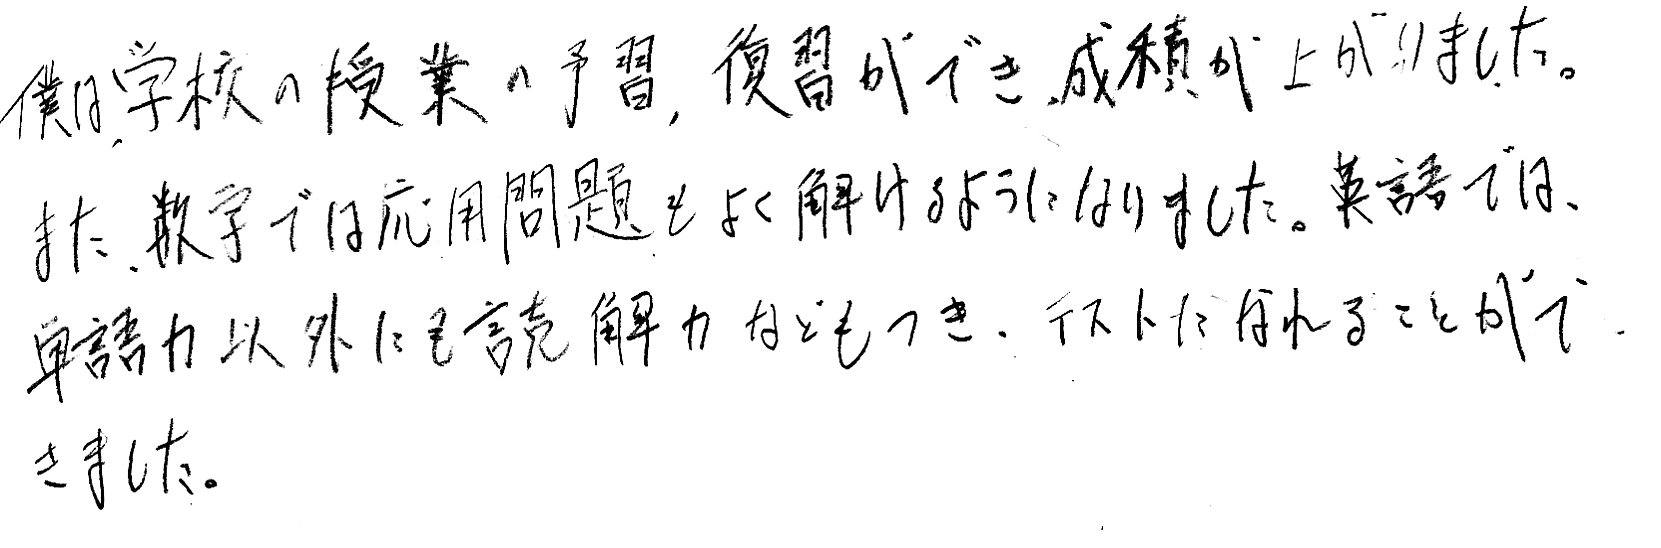 僕は、学校の授業の予習、復習ができ、成績が上がりました。
また、数学では応用問題もよく解けるようになりました。英語では、
単語力以外にも読解力などもつき、テストになれることがで
きました。